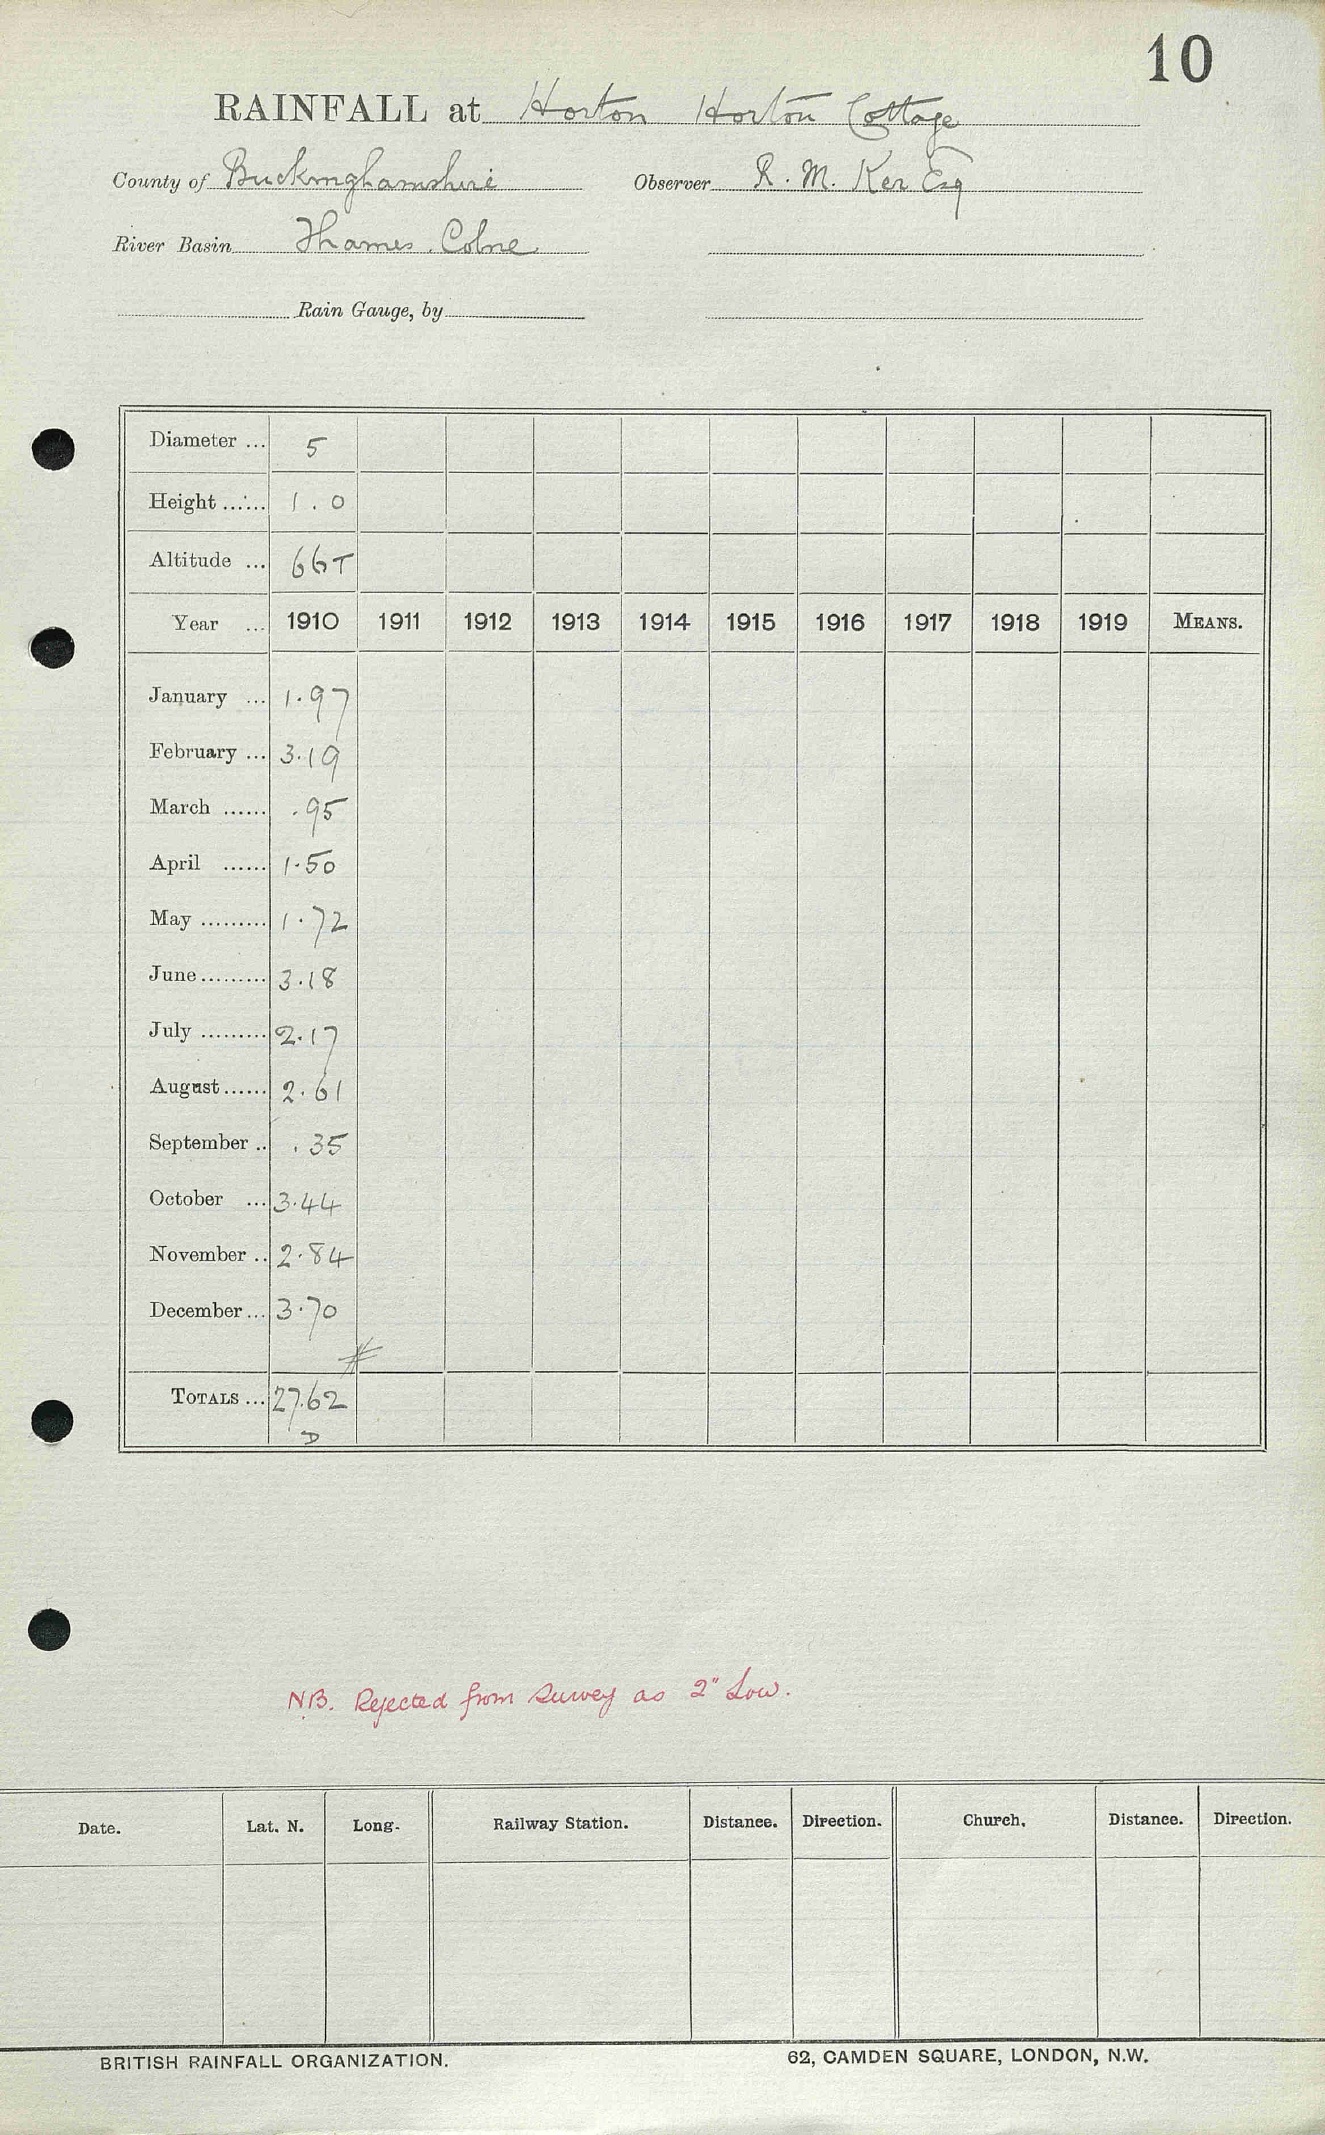 10
RAINFALL at Horton Horton Cottage
County of Buckinghamshire Observer R. M. Ker Esq
River Basin Thames. Colne
Rain Gauge, by
Diameter ... 5
Height ...... 1.0
Altitude ... 66T
Year ... 1910 1911 1912 1913 1914 1915 1916 1917 1918 1919 MEANS.
January ... 1.97
February ... 3.19
March ...... .95
April ...... 1.50
May ......... 1.72
June ......... 3.18
July ......... 2.17
August ...... 2.61
September .. .35
October ... 3.44
November .. 2.84
December ... 3.70
#
TOTALS ... 27.62
D
N.B. Rejected from Survey as 2" Low.
Date. Lat. N. Long. Railway Station. Distance. Direction. Church. Distance. Direction.
BRITISH RAINFALL ORGANIZATION. 62, CAMDEN SQUARE, LONDON, N.W.